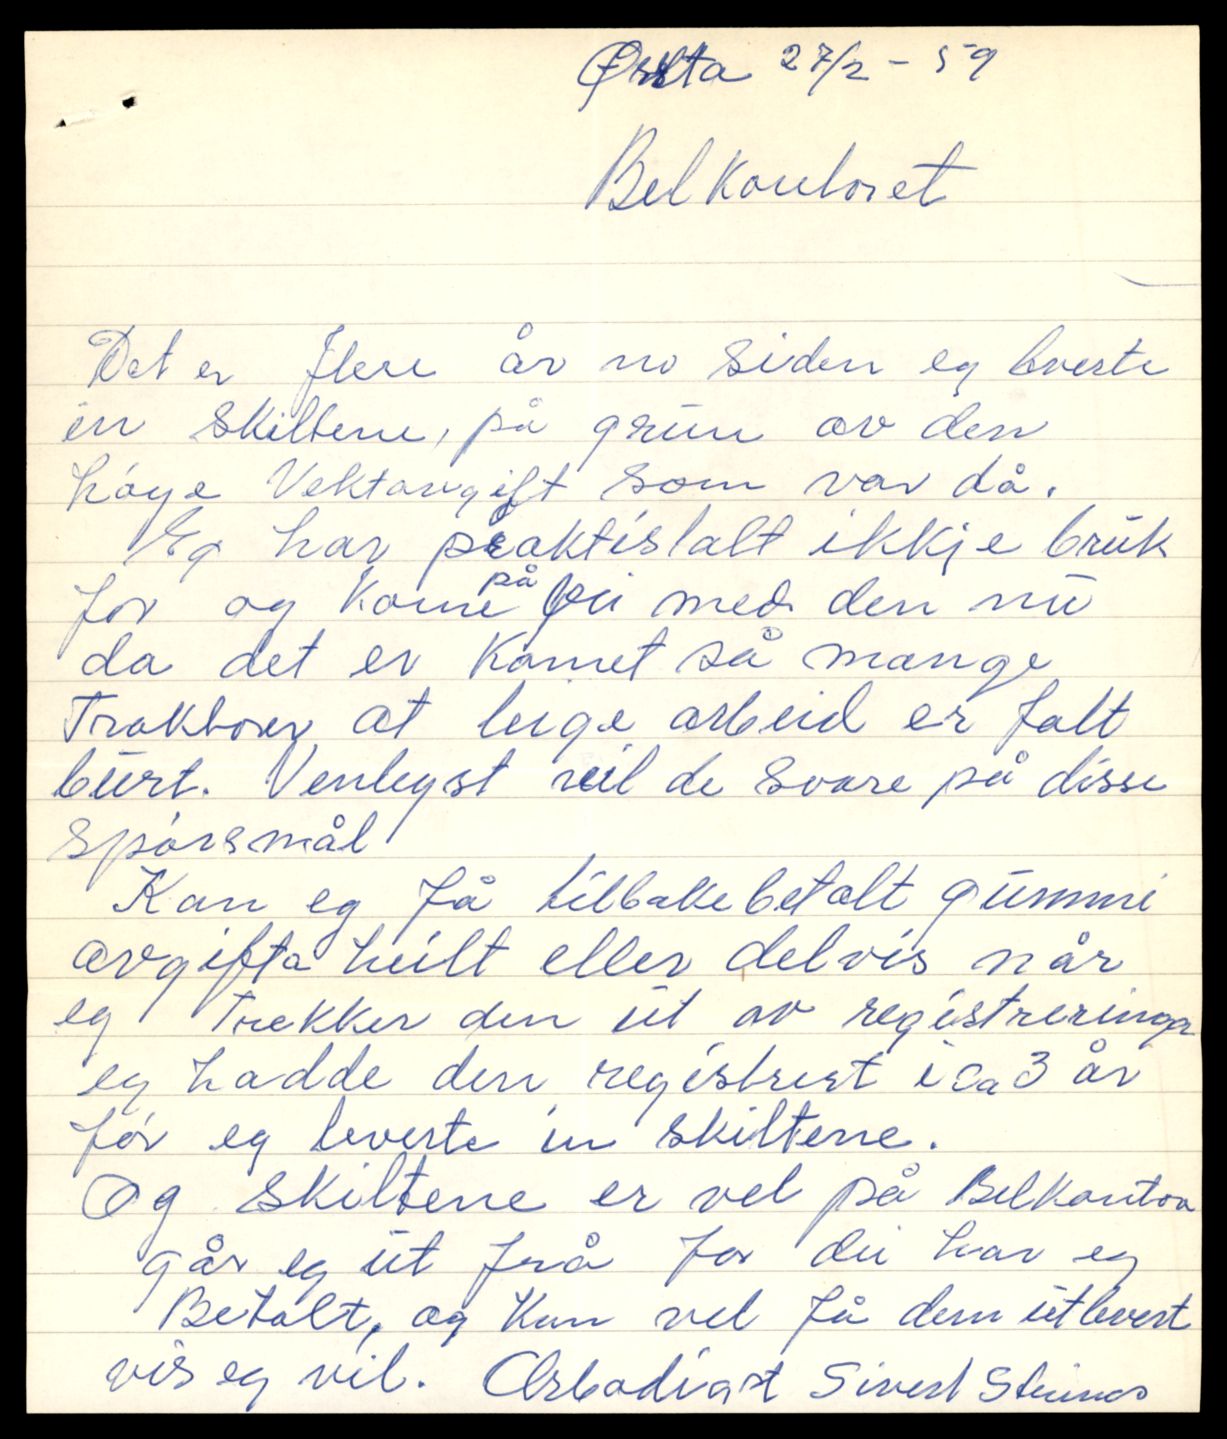 Ørsta 27/2 - 59
Belkontoret
Det er flere år no siden eg leverte
in skiltene, på grun av den
høge Vektavgift som var då.
Eg har praktisk talt ikkje bruk
for og kome på med den nu
da det er komet så mange
Traktorer at leige arbeid er falt
burt. Venlegst vil de svare på disse
spørsmål
Kan eg få tilbakebetalt gummi
avgifta heilt eller delvis når
eg Trekker den ut av registreringa
eg hadde den registrert i ca 3 år
før eg leverte in skiltene.
Og skiltene er vel på Belkontoa
går eg ut frå for di har eg
Betalt, og kan vel få dem utlevert
vis eg vil. Ærbødigst Sivert